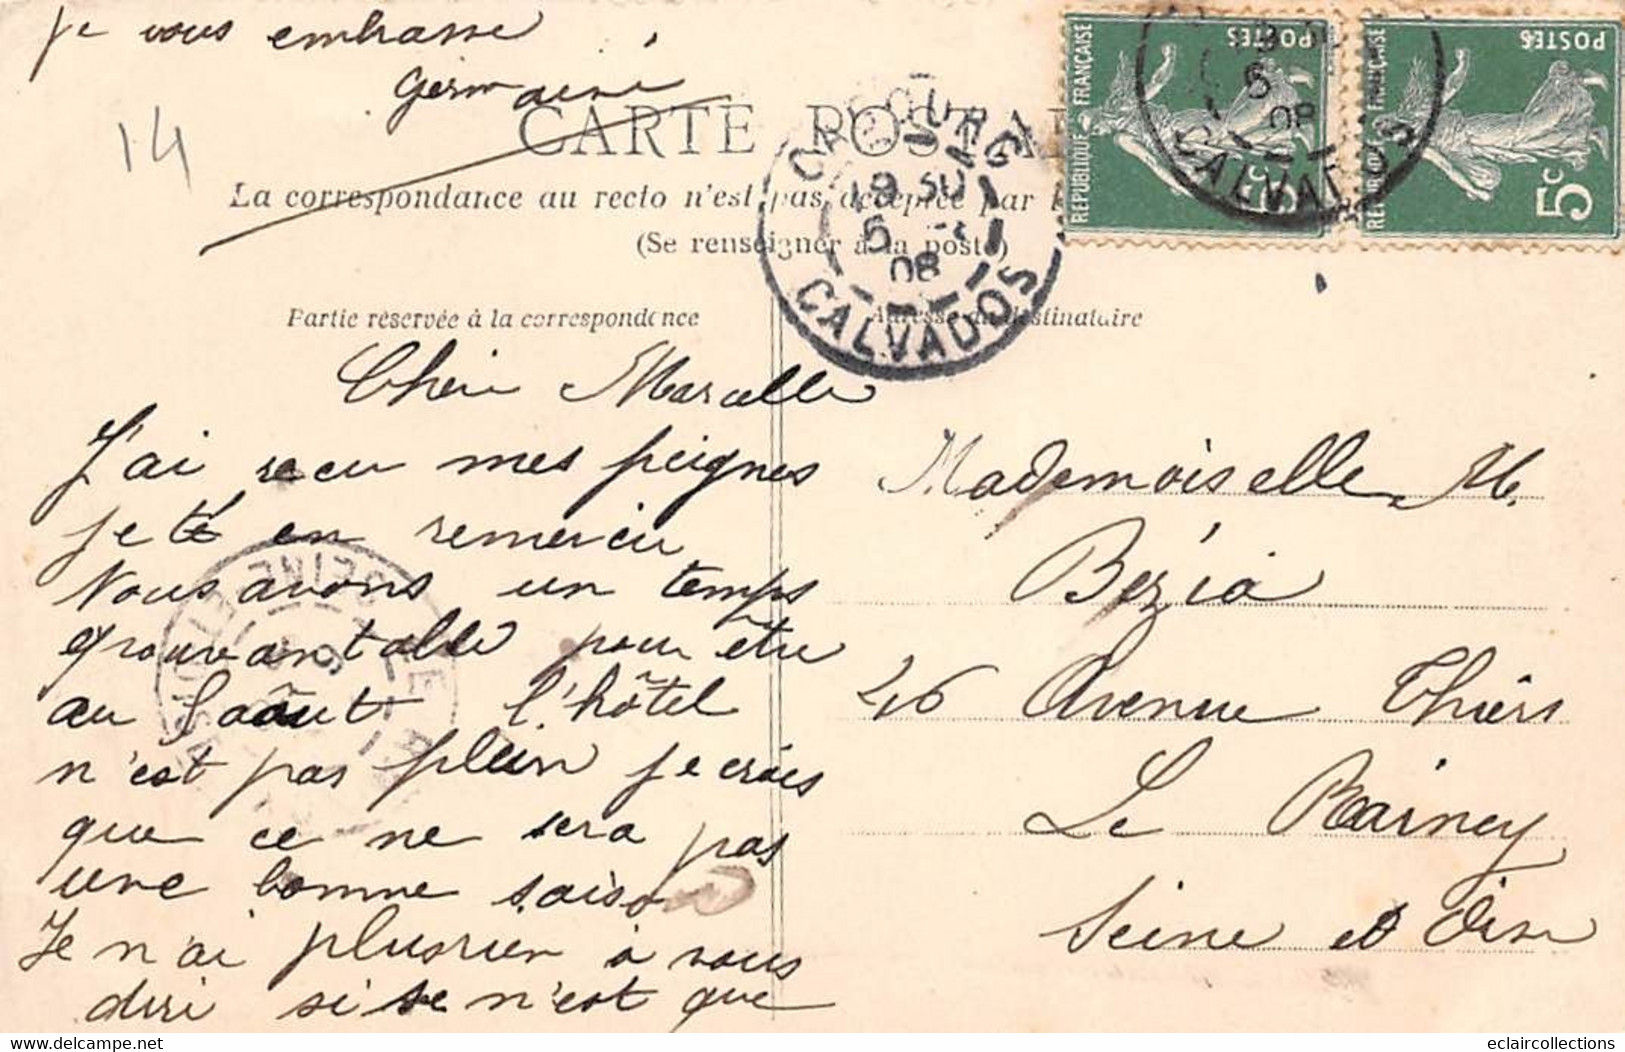 je vous embrasse
Germaine
14
CARTE POSTA
La correspondance au recto n'est pas acceptée par
(Se renseigner à la poste)
CALVADOS
5
08
CALVADOS
5
08
REPUBLIQUE FRANÇAISE
POSTES
5c
FRANÇAISE
POSTES
5c
Partie réservée à la correspondance
Adresse du destinataire
Cheri Marcelle
J'ai recu mes peignes
je te en remercu
Nous avons un temps
epouvantable pour être
au l'août l'hôtel
n'est pas plein je crois
que ce ne sera pas
une bonne saison
Je n'ai plus rien à vous
dire si se n'est que
Mademoiselle M.
Bezia
46 Avenue Thiers
Le Rainey
Seine et Oise
SEINE ET OISE
eclaircollections